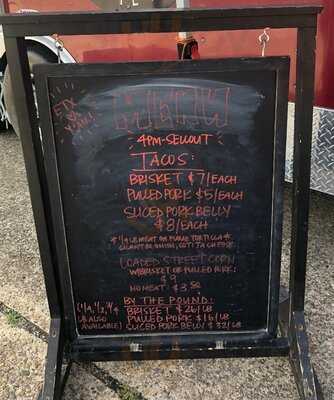 MENU
4PM-SELLOUT
TACOS:
BRISKET $7/EACH
PULLED PORK $5/EACH
SLICED PORK BELLY
$8/EACH
* 1/4 LB MEAT ON FLOUR TORTILLA *
CILANTRO, ONION, COTIJA CHEESE
LOADED STREET CORN
W/BRISKET OR PULLED PORK:
$9
NO MEAT: $3.50
BY THE POUND:
(1/4, 1/2, 3/4
LB ALSO
AVAILABLE)
BRISKET $26/LB
PULLED PORK $16/LB
SLICED PORK BELLY $32/LB